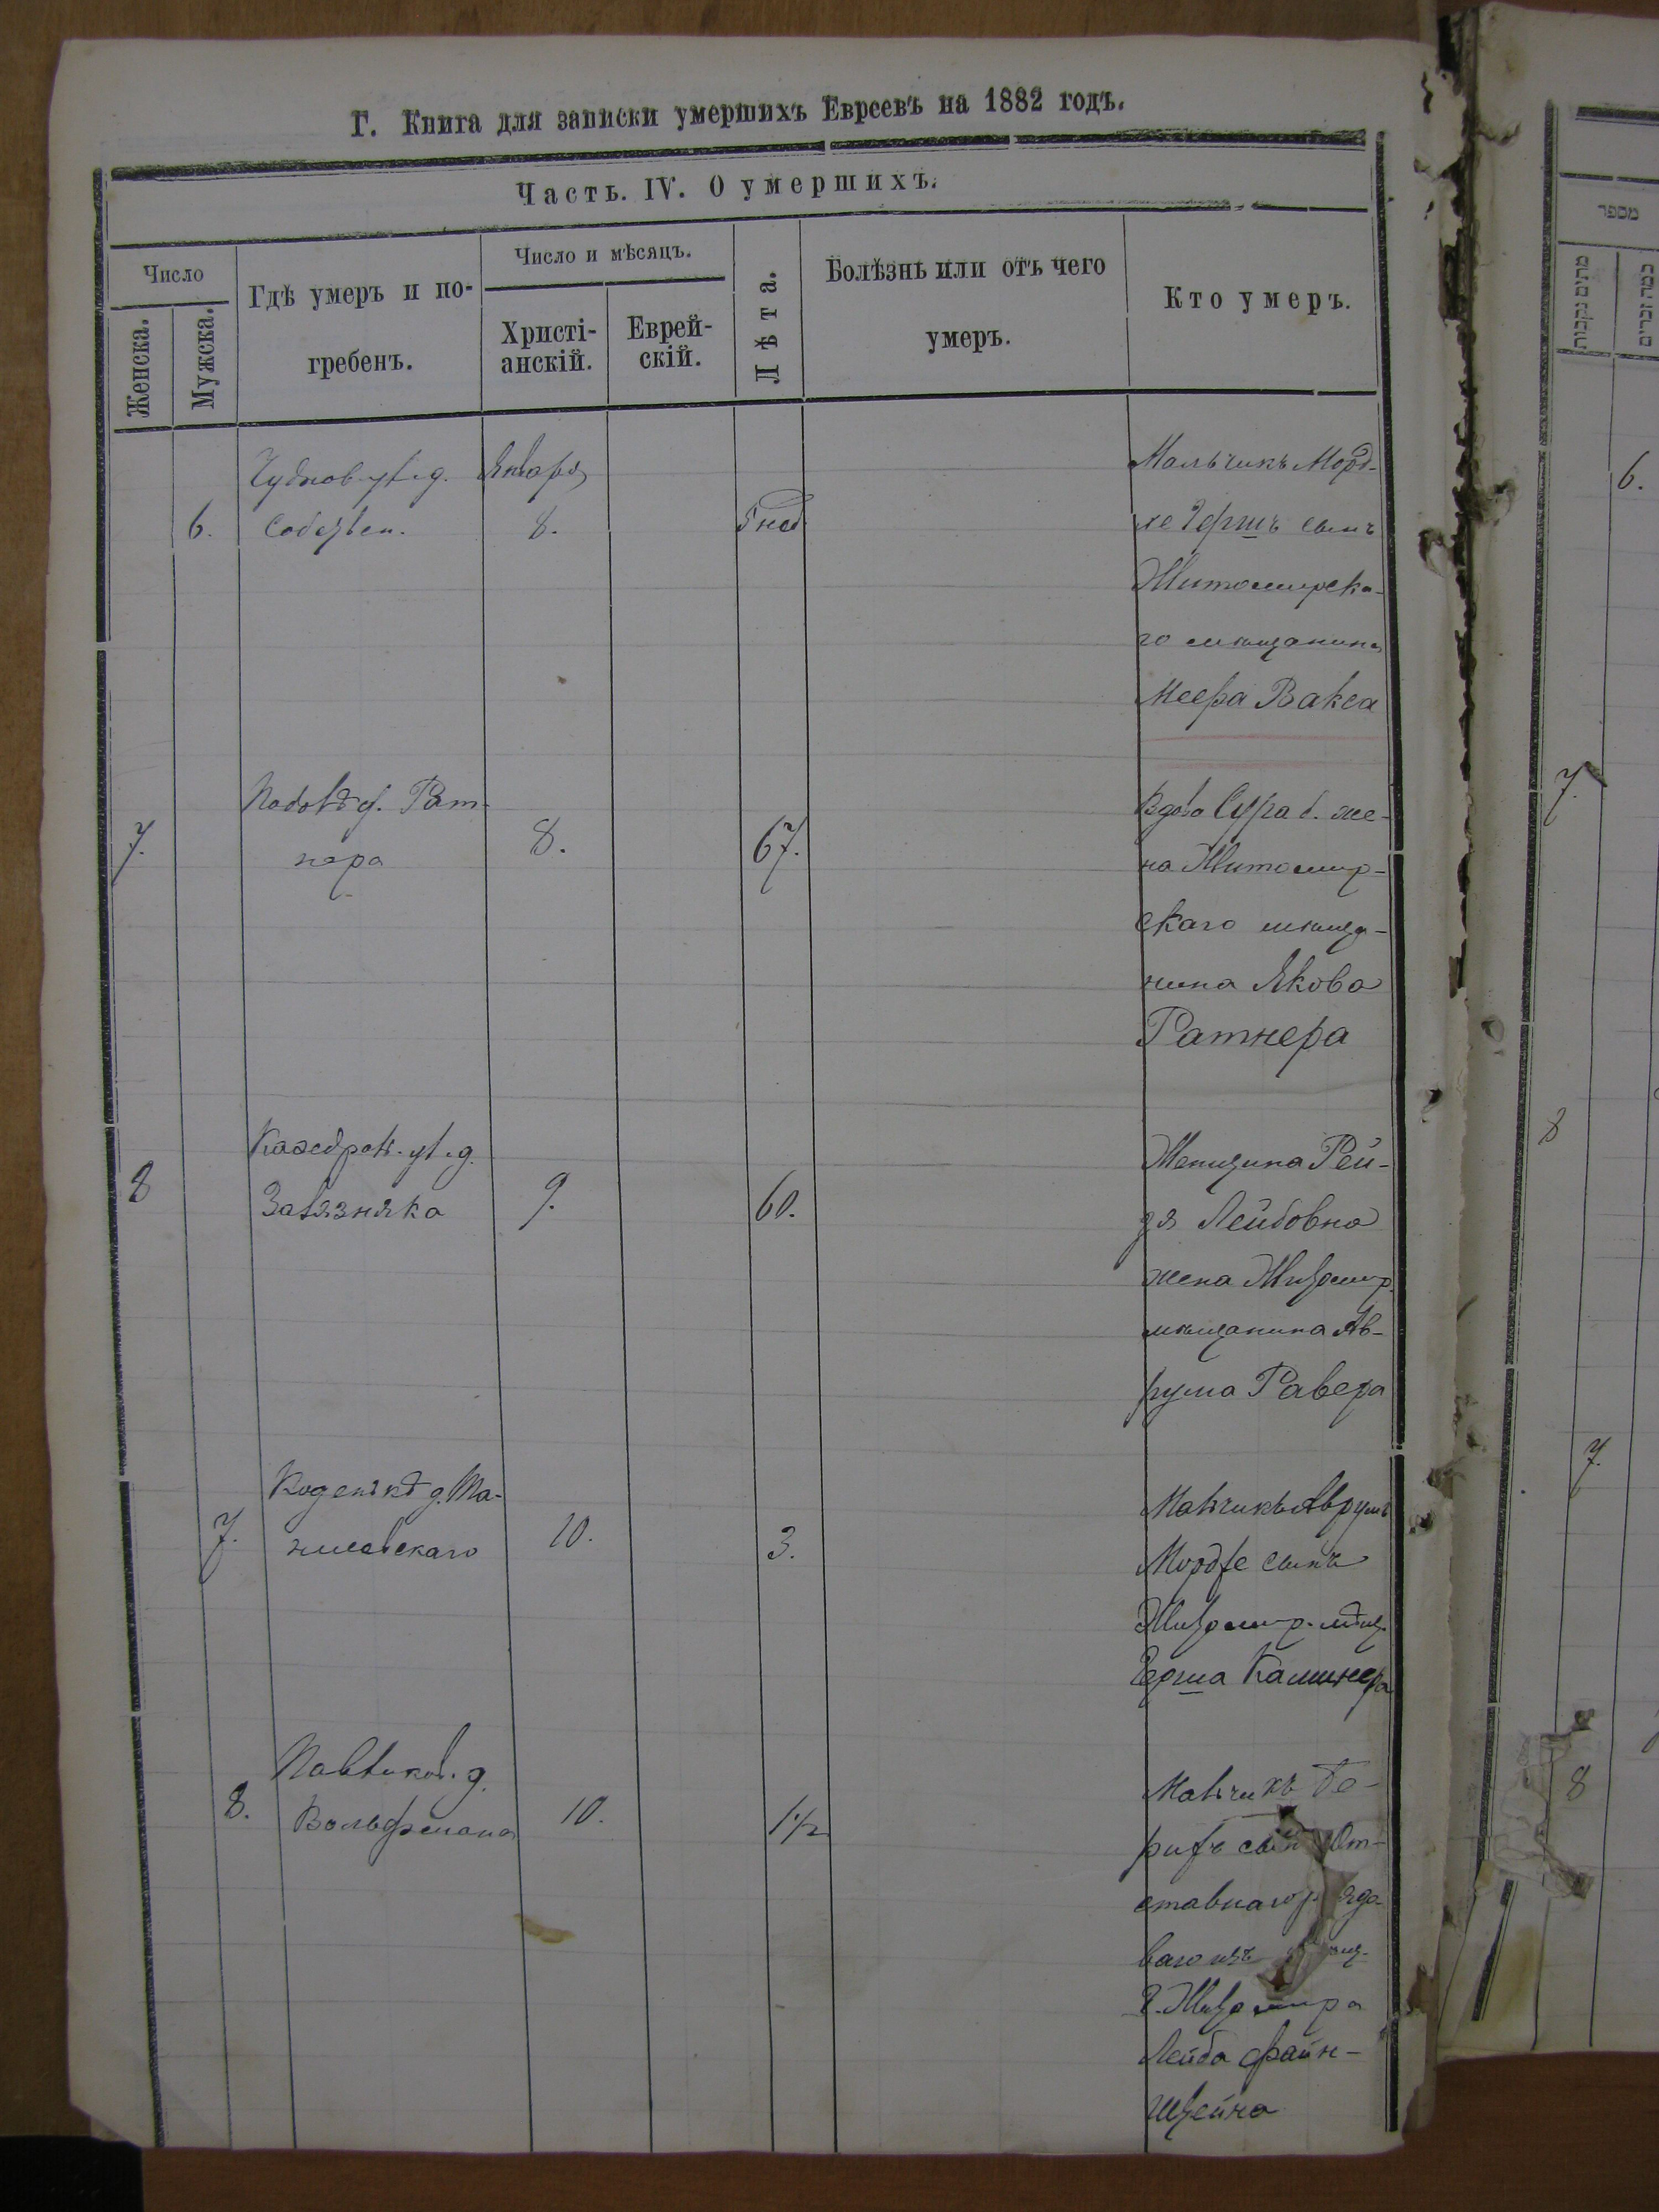 Г. Книга для записки умершихъ Евреевъ на 1882 годъ.
Часть. IV. О умершихъ.
Число
Женска.
Мужска.
Гдѣ умеръ и по-
гребенъ.
Число и мѣсяцъ.
Христі-
анскій.
Еврей-
скій.
Лѣта.
Болѣзнь или отъ чего
умеръ.
Кто умеръ.
Чудновс. ул. д.
6. Собствен.
Января
8.
5 нед
Мальчикъ Морд-
хе Гершъ сынъ
Житомирска-
го мѣщанина
Меера Вакса
7.
д. Рат-
нера
8.
67.
Вдова Сура б. же-
на Житомир-
скаго мѣща-
нина Якова
Ратнера
8
Кафедрал. ул. д.
Завязняка
9.
60.
Женщина Рей-
зя Лейбовна
жена Житомир.
мѣщанина Ав-
рума Равера
7.
10.
3.
Мальчикъ Аврумъ
Мордхе сынъ
Житомир. мѣщ.
Герша
8.
д.
Вольфмана
10.
1½
Мальчикъ Бо-
рихъ сынъ От-
ставнаго ряда-
ваго изъ
г. Житомира
Лейба Файн-
штейна
מספר
6.
7.
8
7.
8